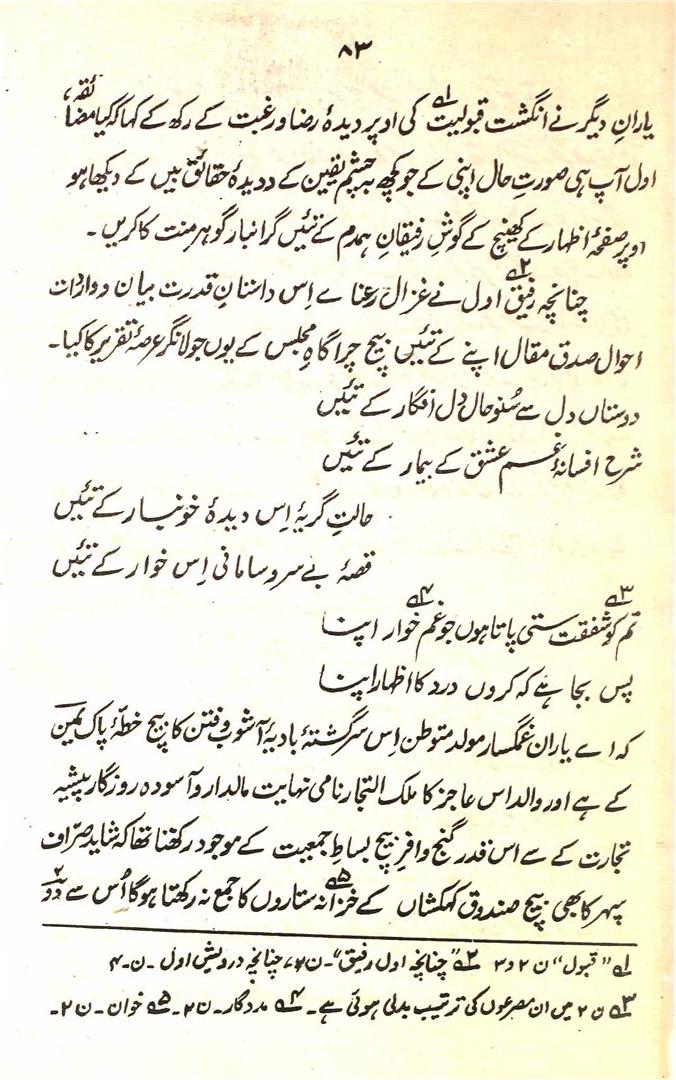 ۸۳
یارانِ دیگر نے انگشت قبولیت۱؎ کی اوپر دیدۂ رضا و رغبت کے رکھ کے کہا کہ کیا مضائقہ،
اول آپ ہی صورتِ حال اپنی کے جو کچھ بہ چشمِ یقین کے و دیدۂ حقائق بیں کے دیکھا ہو
اوپر صفحۂ اظہار کے کھینچ کے گوشِ رفیقانِ ہمدم کے تئیں گرانبار گوہر منت کا کریں۔
چنانچہ رفیق۲؎ اول نے غزالِ رعنائے اِس داستانِ قدرت بیان و واردات
احوال صدق مقال اپنے کے تئیں بیچ چراگاہِ مجلس کے یوں جولانگر عرصۂ تقریر کا کیا۔
دوستاں دل سے سُنو حالِ دل افگار کے تئیں
شرح افسانۂ غم عشق کے بیمار کے تئیں
حالتِ گریۂ اِس دیدۂ خونبار کے تئیں
قصۂ بے سروسامانی اِس خوار کے تئیں
تم کو۳؎ شفقت ستی پاتا ہوں جو غم خوار۴؎ اپنا
پس بجا ہے کہ کروں درد کا اظہار اپنا
کہ اے یاران غمگسار مولد متوطن اِس سرگشتۂ بادیۂ آشوب و فتن کا بیچ خطۂ پاک یمین
کے ہے اور والد اس عاجز کا ملک التجار نامی نہایت مالدار و آسودہ روزگار پیشیہ
تجارت کے سے اس قدر گنج وافر بیچ بساطِ جمعیت کے موجود رکھتا تھا کہ شاید صرّاف
سپہر کا بھی بیچ صندوق کہکشاں کے خزانہ۵؎ ستاروں کا جمع نہ رکھتا ہوگا اُس سے دو۲
۱؎ "قبول" ن ۲ و ۳ ۲؎ "چنانچہ اول رفیق"۔ ن ۲، چنانچہ درویش اول۔ ن۔ ۴
۳؎ ن ۲ میں ان مصرعوں کی ترتیب بدلی ہوئی ہے۔ ۴؎ مددگار۔ ن ۲۔ ۵؎ خوان۔ ن ۲۔